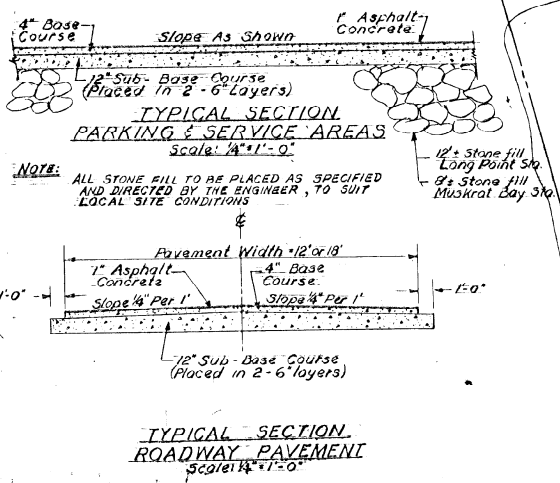 4" Base
Course
Slope As Shown
1" Asphalt
Concrete
12" Sub-Base Course
(Placed in 2-6" Layers)
TYPICAL SECTION
PARKING & SERVICE AREAS
Scale: 1/4"=1'-0"
12'± Stone fill
Long Point Sta.
8'± Stone fill
Muskrat Bay Sta.
NOTE:
ALL STONE FILL TO BE PLACED AS SPECIFIED
AND DIRECTED BY THE ENGINEER, TO SUIT
LOCAL SITE CONDITIONS
℄
Pavement Width = 12' or 18'
1" Asphalt
Concrete
4" Base
Course
1'-0"
Slope 1/4" Per 1'
Slope 1/4" Per 1'
1'-0"
12" Sub-Base Course
(Placed in 2-6" layers)
TYPICAL SECTION
ROADWAY PAVEMENT
Scale: 1/4"=1'-0"